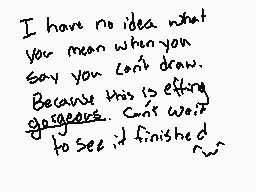 I have no idea what
you mean when you
say you can't draw.
Because this is effing
gorgeous. Can't wait
to see it finished
^w^